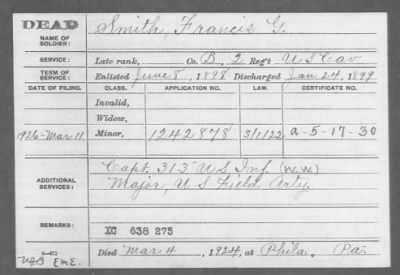 DEAD
NAME OF SOLDIER: Smith, Francis G.
SERVICE: Late rank, Co. B, 2 Reg't U S Cav
TERM OF SERVICE: Enlisted June 8, 1898 Discharged Jan 24, 1899
DATE OF FILING. CLASS. APPLICATION NO. LAW. CERTIFICATE NO.
Invalid,
Widow,
1926-Mar 11 Minor, 1242878 3/1/22 a-5-17-30
ADDITIONAL SERVICES: Capt. 313 U S Inf. (W.W.)
Major, U S Field Arty.
REMARKS: XC 638 275
Died Mar 4, 1924, at Phila. Pa.
6-671
EmE.